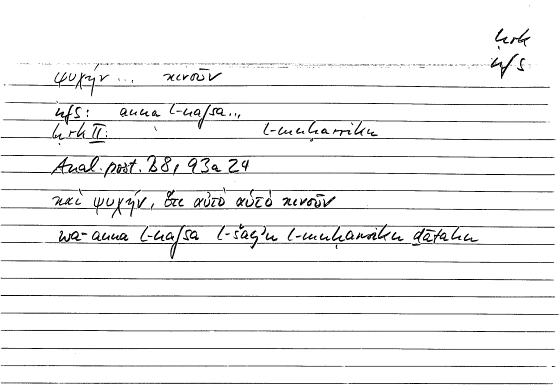 ḥrk
nfs
ψυχήν ... κινοῦν
nfs: anna l-nafsa...
ḥrk II: l-muḥarriku
Anal. post. B8, 93a24
καὶ ψυχήν, ὅτι αὐτὸ αὑτὸ κινοῦν
wa-anna l-nafsa l-šayʾu l-muḥarriku ḏātahu